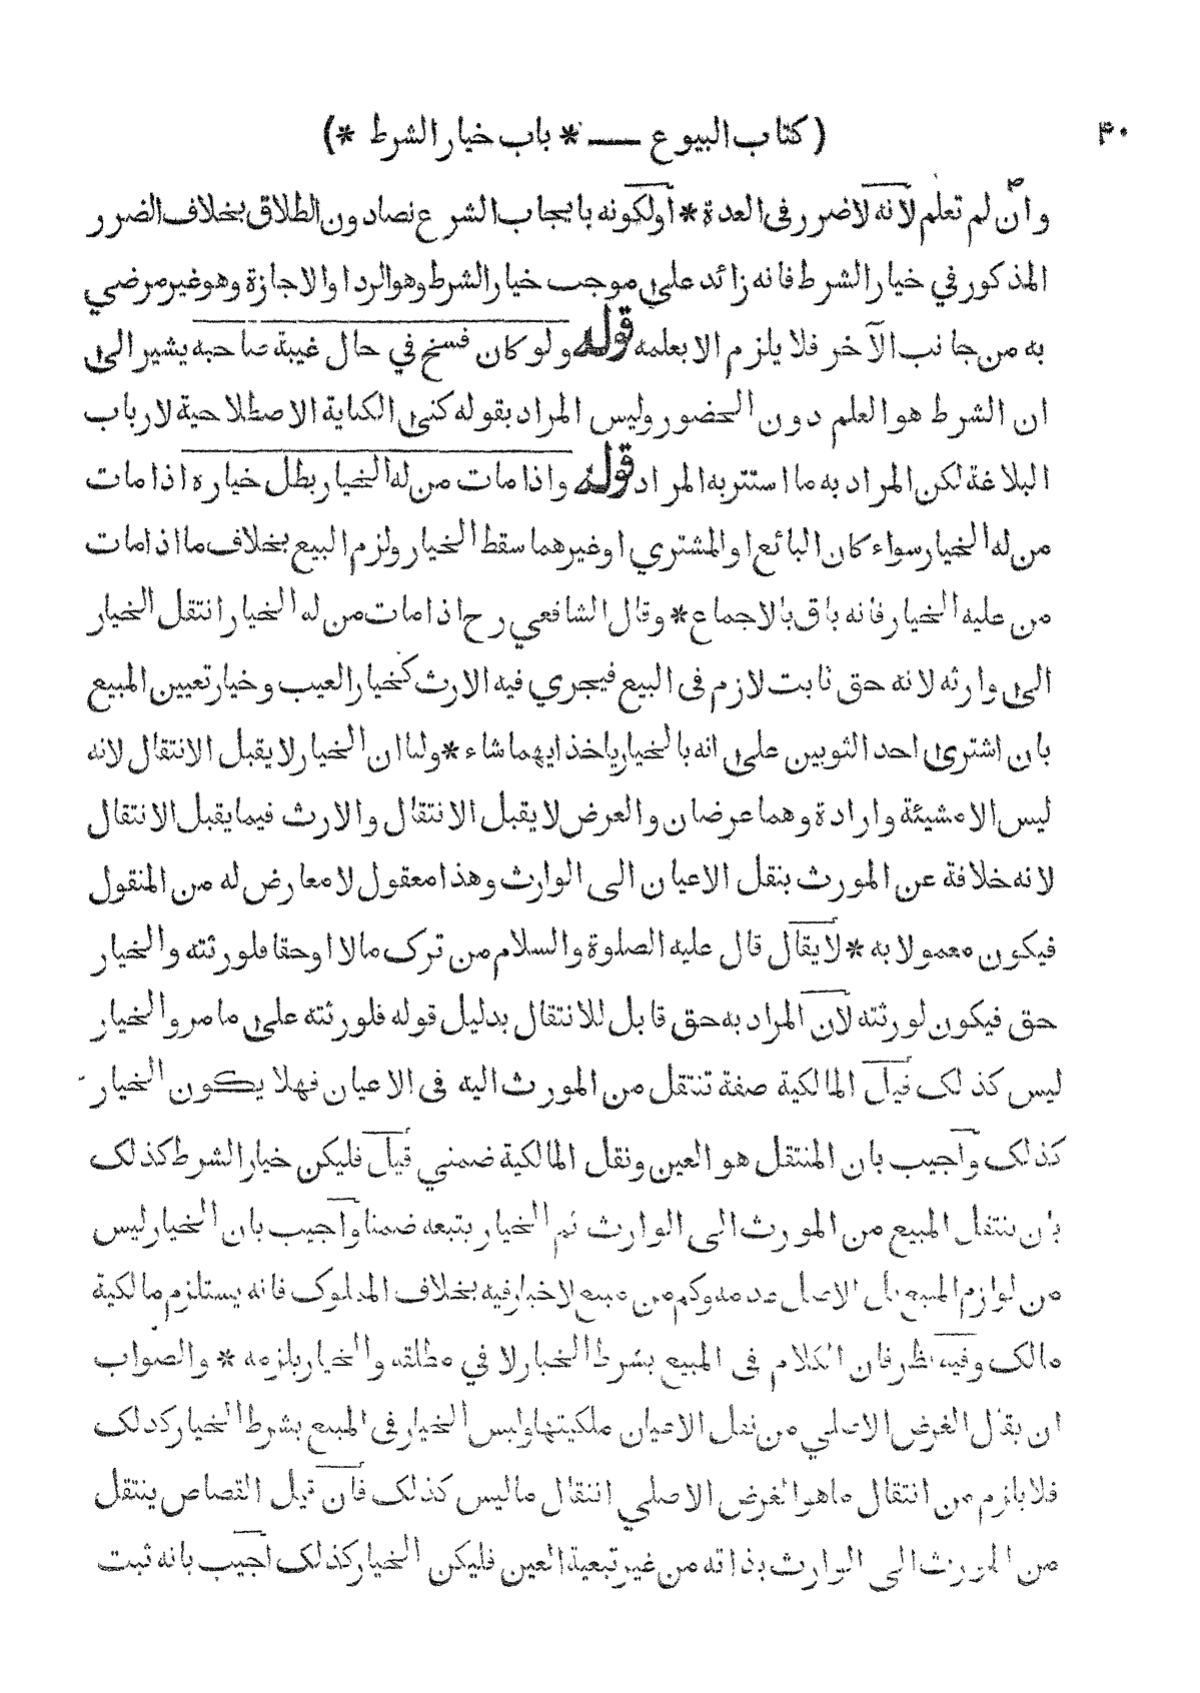 ۴۰ (كتاب البيوع — * باب خيار الشرط *)
وان لم تعلم لانه لاضرر فى العدة * أولكونه بايجاب الشرع نصادون الطلاق بخلاف الضرر
المذكور في خيار الشرط فانه زائد على موجب خيار الشرط وهوالرد او الاجازة وهو غير مرضي
به من جانب الآخر فلا يلزم الا بعلمه قوله ولو كان فسخ في حال غيبة صاحبه يشير الى
ان الشرط هو العلم دون الحضور وليس المراد بقوله كنى الكناية الاصطلاحية لارباب
البلاغة لكن المراد به ما استتر به المراد قوله واذا مات من له الخيار بطل خياره اذا مات
من له الخيار سواء كان البائع او المشتري او غيرهما سقط الخيار ولزم البيع بخلاف ما اذا مات
من عليه الخيار فانه باق بالاجماع * وقال الشافعي رح اذا مات من له الخيار انتقل الخيار
الى وارثه لانه حق ثابت لازم فى البيع فيجري فيه الارث كخيار العيب وخيار تعيين المبيع
بان اشترى احد الثوبين على انه بالخيار ياخذ ايهما شاء * ولنا ان الخيار لا يقبل الانتقال لانه
ليس الا مشيئة وارادة وهما عرضان والعرض لا يقبل الانتقال والارث فيما يقبل الانتقال
لانه خلافة عن المورث بنقل الاعيان الى الوارث وهذا معقول لا معارض له من المنقول
فيكون معمولا به * لايقال قال عليه الصلوة والسلام من ترك مالا او حقا فلورثته والخيار
حق فيكون لورثته لان المراد به حق قابل للانتقال بدليل قوله فلورثته على ما مر والخيار
ليس كذلك قيل المالكية صفة تنتقل من المورث اليه فى الاعيان فهلا يكون الخيار
كذلك واجيب بان المنتقل هو العين ونقل المالكية ضمني قيل فليكن خيار الشرط كذلك
بان ينتقل المبيع من المورث الى الوارث ثم الخيار يتبعه ضمنا واجيب بان الخيار ليس
من لوازم المبيع بل الاصل عدمه وكم من مبيع لاخيار فيه بخلاف المملوك فانه يستلزم مالكية
مالك وفيه نظر فان الكلام فى المبيع بشرط الخيار لا في مطلقه والخيار يلزمه * والصواب
ان يقال الغرض الاصلي من نقل الاعيان ملكيتها وليس الخيار فى المبيع بشرط الخيار كذلك
فلا يلزم من انتقال ما هو الغرض الاصلي انتقال ما ليس كذلك فان قيل القصاص ينتقل
من المورث الى الوارث بذاته من غير تبعية العين فليكن الخيار كذلك اجيب بانه ثبت